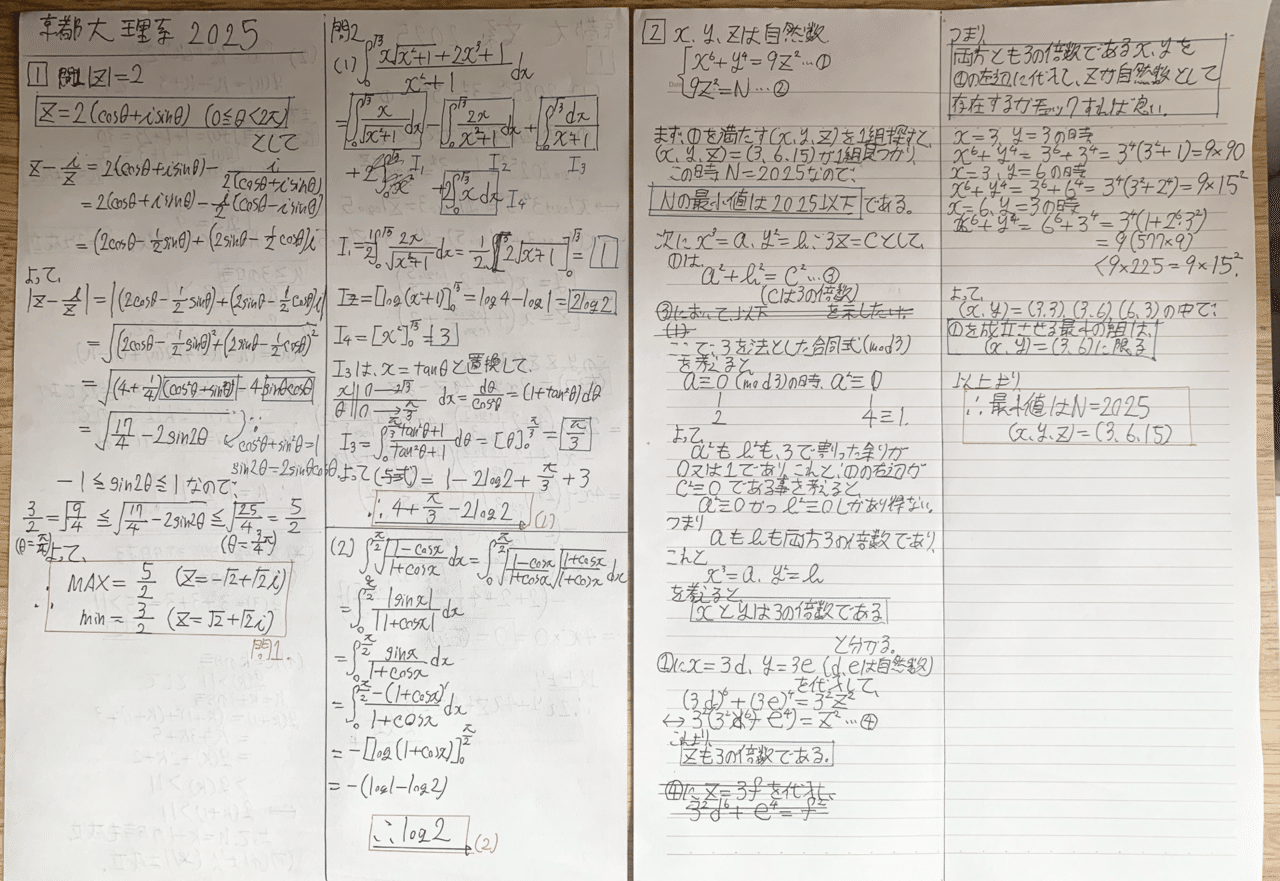 京都大 理系 2025
1 問1 |z|=2
z=2(cosθ+isinθ) (0≦θ<2π)
として
z-i/z=2(cosθ+isinθ)-i/2(cosθ+isinθ)
=2(cosθ+isinθ)-i/2(cosθ-isinθ)
=(2cosθ-1/2sinθ)+(2sinθ-1/2cosθ)i
よって、
|z-i/z|=|(2cosθ-1/2sinθ)+(2sinθ-1/2cosθ)i|
=√(2cosθ-1/2sinθ)²+(2sinθ-1/2cosθ)²
=√(4+1/4)(cos²θ+sin²θ)-4sinθcosθ
=√17/4-2sin2θ
∵cos²θ+sin²θ=1
sin2θ=2sinθcosθ
-1≦sin2θ≦1 なので、
3/2=√9/4≦√17/4-2sin2θ≦√25/4=5/2
(θ=π/4) (θ=3/4π)
よって、
∴ MAX=5/2 (z=-√2+√2i)
min=3/2 (z=√2+√2i)
問1
問2
(1) ∫₀^√3 x√x²+1+2x³+1/x²+1 dx
=∫₀^√3 x/√x²+1 dx-∫₀^√3 2x/x²+1 dx+∫₀^√3 dx/x²+1
I₁ I₂ I₃
+2∫₀^√3 x dx I₄
I₁=1/2∫₀^√3 2x/√x²+1 dx=1/2[2√x²+1]₀^√3=1
I₂=[log(x²+1)]₀^√3=log4-log1=2log2
I₄=[x²]₀^√3=3
I₃は、x=tanθと置換して、
x|0→√3
θ|0→π/3 dx=dθ/cos²θ=(1+tan²θ)dθ
I₃=∫₀^π/3 tan²θ+1/tan²θ+1 dθ=[θ]₀^π/3=π/3
よって(与式)=1-2log2+π/3+3
∴4+π/3-2log2 (1)
(2) ∫₀^π/2 √1-cosx/1+cosx dx=∫₀^π/2 √1-cosx/1+cosx √1+cosx/1+cosx dx
=∫₀^π/2 |sinx|/|1+cosx| dx
=∫₀^π/2 sinx/1+cosx dx
=∫₀^π/2 -(1+cosx)'/1+cosx dx
=-[log(1+cosx)]₀^π/2
=-(log1-log2)
∴log2 (2)
2 x,y,zは自然数
{x⁶+y⁴=9z²…①
9z²=N…②
まず、①を満たす(x,y,z)を1組探すと、
(x,y,z)=(3,6,15)が1組見つかり、
この時N=2025なので、
Nの最小値は2025以下である。
次にx³=a, y²=b, 3z=cとして、
①は、
a²+b²=c²…③
(cは3の倍数)
③において、以下を示したい。
(1)
ここで、3を法とした合同式(mod3)
を考えると
a≡0(mod3)の時、a²≡0
1 1
2 4≡1.
よって
a²もb²も、3で割った余りが
0又は1であり、これと、①の右辺が
c²≡0である事を考えると、
a²≡0かつb²≡0しかあり得ない。
つまり
aもbも両方3の倍数であり、
これと
x³=a, y²=b
を考えると、
xとyは3の倍数である
と分かる。
①にx=3d, y=3e (d,eは自然数)
を代入して、
(3d)⁶+(3e)⁴=3²z²
↔3²(3²d⁶+e⁴)=z²…④
これより、
zも3の倍数である。
④にz=3fを代入し、
3²d⁶+e⁴=f²
つまり、
両方とも3の倍数であるx,yを
①の左辺に代入して、zが自然数として
存在するかチェックすれば良い。
x=3,y=3の時
x⁶+y⁴=3⁶+3⁴=3⁴(3²+1)=9×90
x=3,y=6の時
x⁶+y⁴=3⁶+6⁴=3⁴(3²+2⁴)=9×15²
x=6,y=3の時
x⁶+y⁴=6⁶+3⁴=3⁴(1+2⁶3²)
=9(577×9)
<9×225=9×15².
よって、
(x,y)=(3,3),(3,6),(6,3)の中で、
①を成立させる最小の組は、
(x,y)=(3,6)に限る
以上より
∴最小値はN=2025
(x,y,z)=(3,6,15)